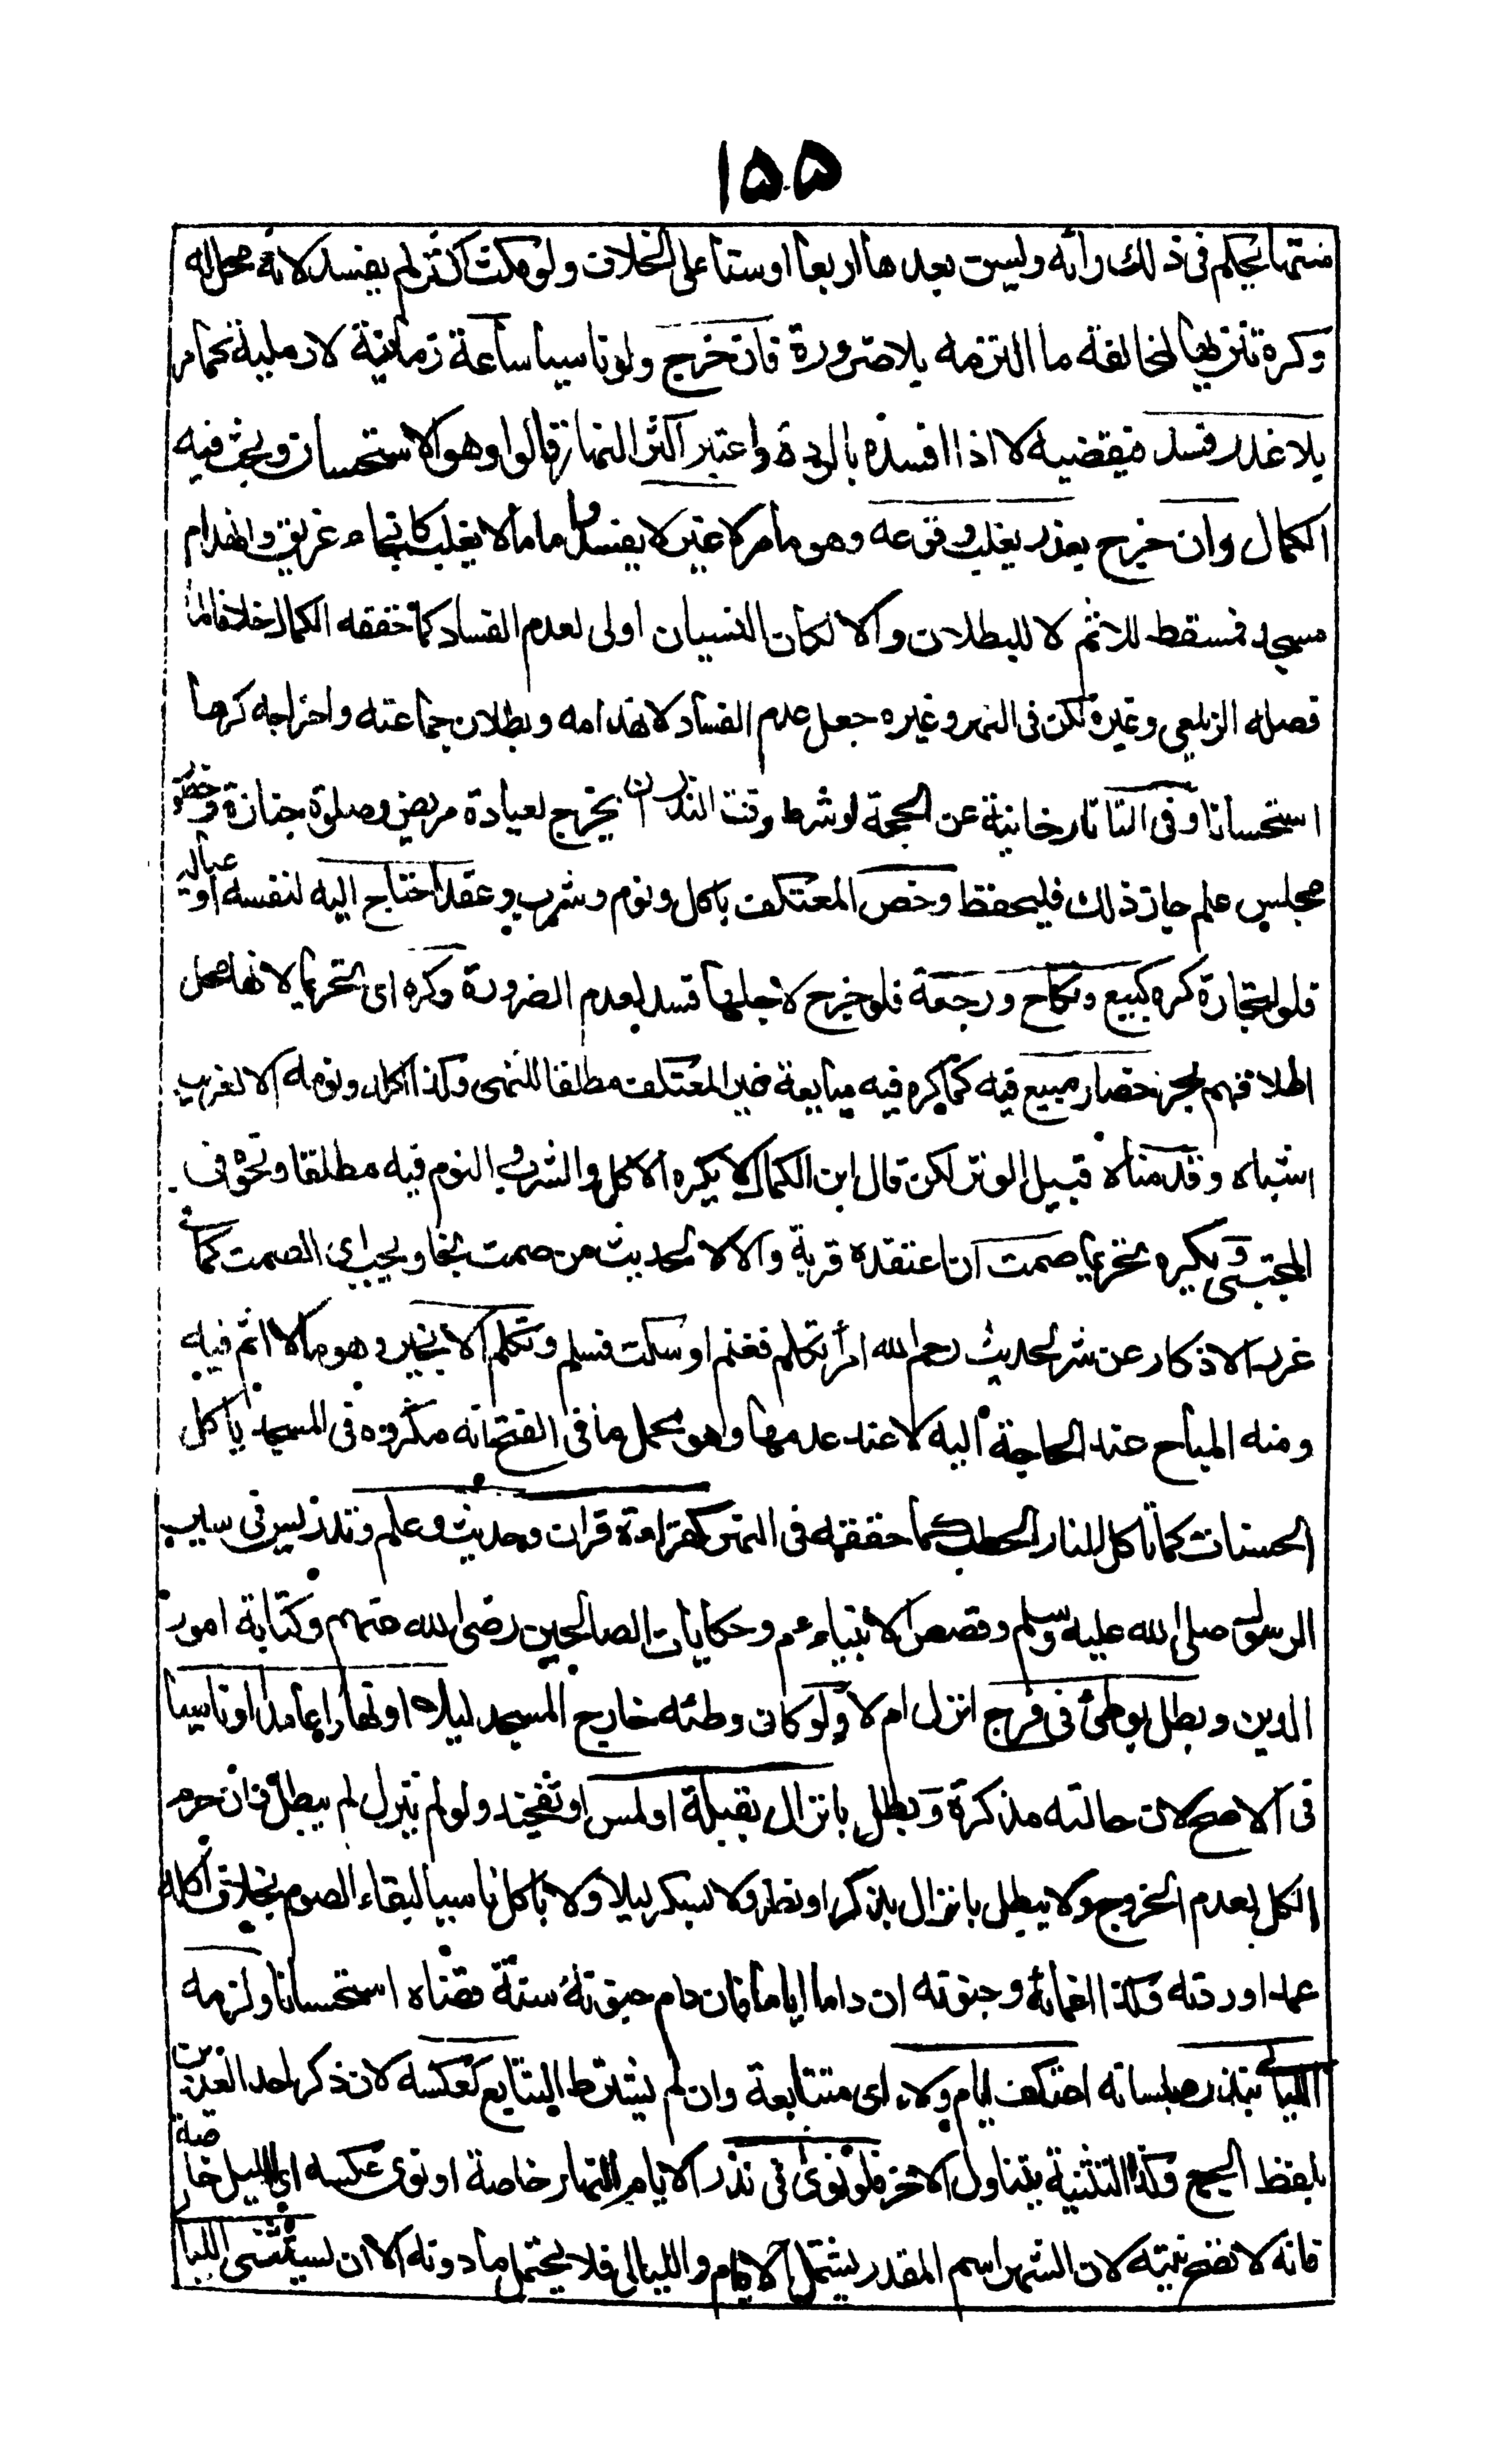 ١٥٥
سنتها يحكم فى ذلك رأيه وليسن بعدها اربعا اوستا على الخلاف ولو مكث اكثر لم يفسد لانه محل له
وكره تنزيها لمخالفة ما التزمه بلا ضرورة فان خرج ولو ناسيا ساعة زمانية لا رملية كما مر
بلا عذر فسد فيقضيه لا اذا افسده بالردة واعتبر اكثر النهار قالوا وهو الاستحسان وبحث فيه
الكمال وان خرج بعذر يغلب وقوعه وهو ما مر لا غير لا يفسد واما مالا يغلب كانجاء غريق وانهدام
مسجد فمسقط للاثم لا للبطلان والا لكان النسيان اولى لعدم الفساد كما حققه الكمال خلافا لما
فصله الزيلعى وغيره لكن فى النهر وغيره جعل عدم الفساد لانهدامه وبطلان جماعته واخراجه كرها
استحسانا وفى التاتارخانية عن الحجة لو شرط وقت النذر ان يخرج لعيادة مريض وصلوة جنازة وحضور
مجلس علم جاز ذلك فليحفظ وخص المعتكف باكل ونوم وشرب وعقد احتاج اليه لنفسه او عياله
فلو لتجارة كره كبيع ونكاح ورجعة فلو خرج لاجلها فسد لعدم الضرورة وكره اى تحريما لانها محل
اطلاقهم بحر احضار مبيع فيه كما كره فيه مبايعة غير المعتكف مطلقا للنهى وكذا اكله ونومه الا لغريب
اشباه وقد مناه قبيل الوتر لكن قال ابن الكمال لا يكره الاكل والشرب والنوم فيه مطلقا ونحوه فى
المجتبى و يكره تحريما صمت ان اعتقده قربة والا لا لحديث من صمت نجا ويجب اى الصمت كما فى
غرر الاذكار عن شر لحديث رحم الله امرأ تكلم فغنم او سكت فسلم وتكلم الا بخير وهو مالا اثم فيه
ومنه المباح عند الحاجة اليه لا عند عدمها وهو محمل ما فى الفتح انه مكروه فى المسجد ياكل
الحسنات كما تاكل النار الحطب كما حققه فى النهر كقراءة قران وحديث وعلم وتدريس فى سير
الرسول صلى الله عليه وسلم وقصص الانبياء عم وحكايات الصالحين رضى الله عنهم وكتابة امور
الدين وبطل بوطئ فى فرج انزل ام لا ولو كان وطئه خارج المسجد ليلا او نهارا عامدا او ناسيا
فى الاصح لان حالته مذكرة و بطل بانزال بقبلة او لمس او تفخيذ ولو لم ينزل لم يبطل وان حرم
الكل لعدم الخروج ولا يبطل بانزال بذكر او نظر ولا لسكر ليلا ولا باكل ناسيا لبقاء الصوم بخلاف اكله
عمدا وردته وكذا اغمائه وجنونه ان داما اياما فان دام جنونه سنة قضاه استحسانا ولزمه
الليالى بنذره بلسانه اعتكاف ايام ولاء اى متتابعة وان لم يشترط التتابع كعكسه لان ذكر احد العددين
بلفظ الجمع وكذا التثنية يتناول الاخر فلو نوى فى نذر الايام النهار خاصة او نوى عكسه اى الليل خاصة
فانه لا تصح نيته لان الشهر اسم المقدر يشتمل الايام والليالى فلا يحتمل ما دونه الا ان يستثنى الليا